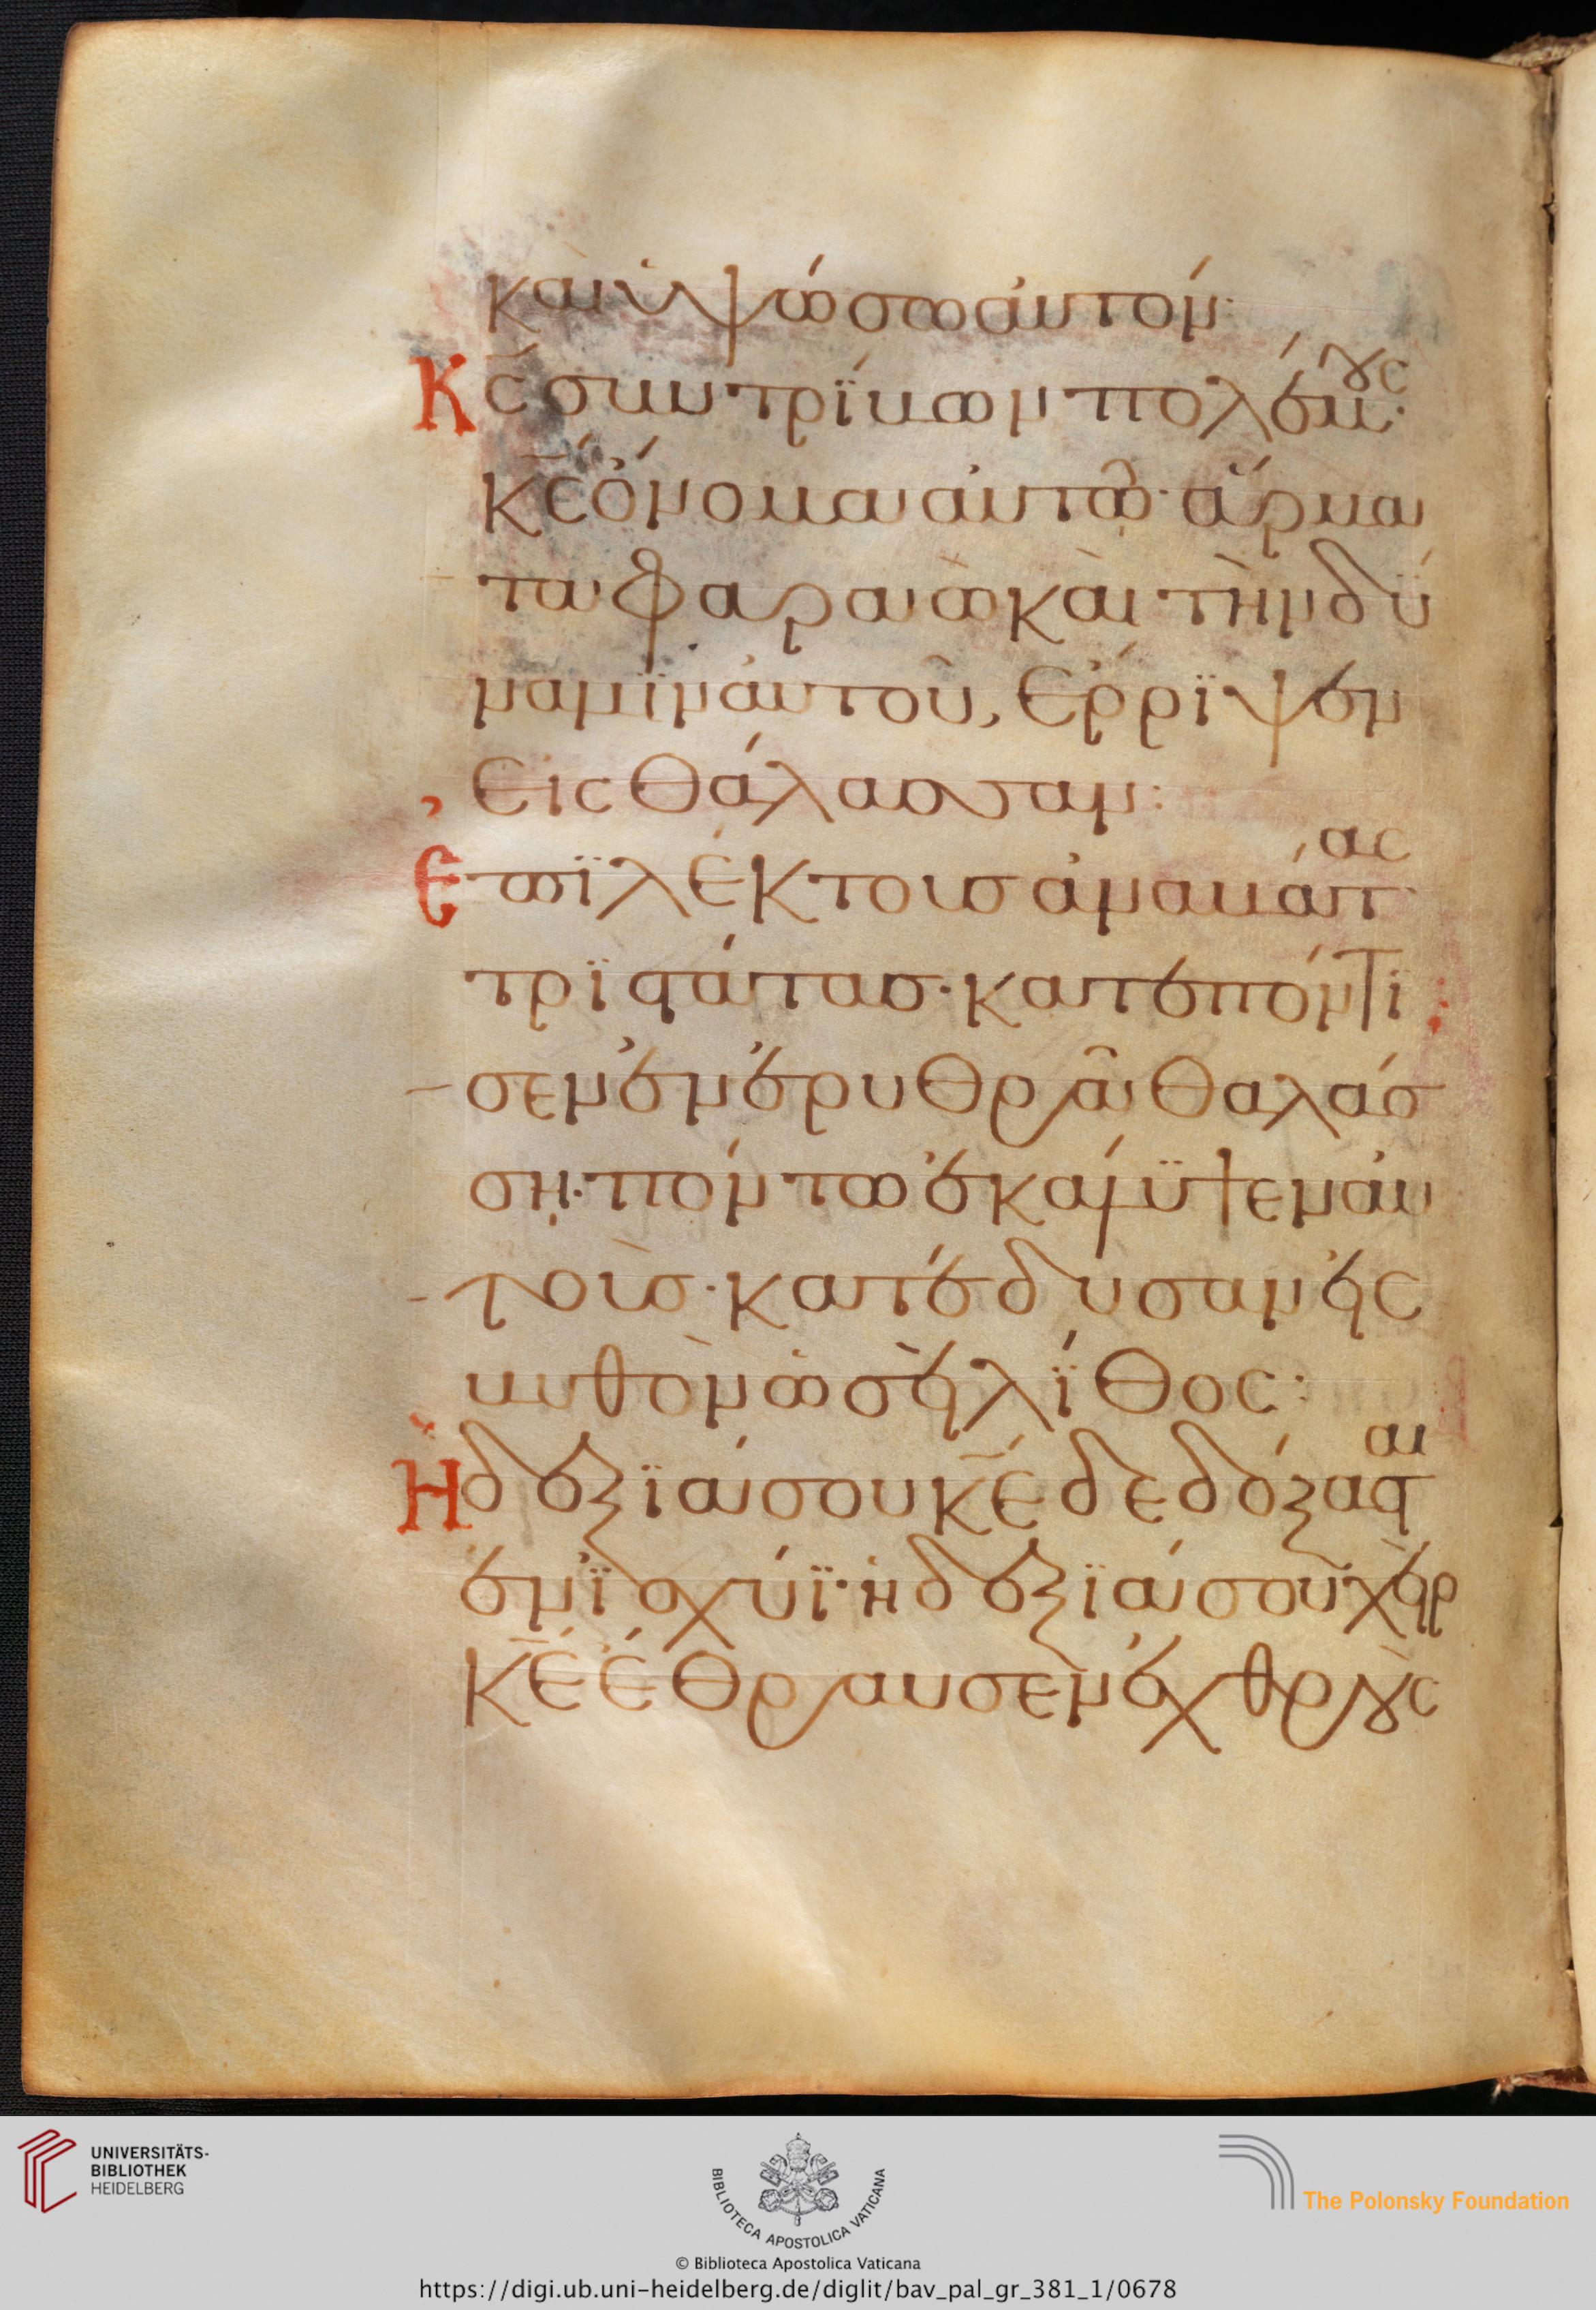 καὶ ὑψώσω ἀυτόν·
Κς̅ συντρίβων πολέμους·
κς̅ ὄνομα ἀυτῶ· ἅρμα
τα φαραὼ καὶ τὴν δύ
ναμϊν ἀυτοῦ, ἔρρϊψεν
εἰς θάλασσαν:
Ἐπϊλέκτους ἀναβάτας
τρϊστάτας· κατεπόντϊ
σεν ἐν ἐρυθρᾶ θαλάσ
σῃ· πόντω ἐκάλυψεν ἀυ
τοὺσ· κατέδυσαν εἰς
βυθὸν ὡσεὶ λίθος:
Ἡ δεξϊά σου κε̅ δεδόξασται
ἐν ἰσχύϊ· ἡ δεξϊά σου χεὶρ
κε̅ ἔθραυσεν ἐχθροὺς
UNIVERSITÄTS-
BIBLIOTHEK
HEIDELBERG
BIBLIOTECA APOSTOLICA VATICANA
The Polonsky Foundation
© Biblioteca Apostolica Vaticana
https://digi.ub.uni-heidelberg.de/diglit/bav_pal_gr_381_1/0678